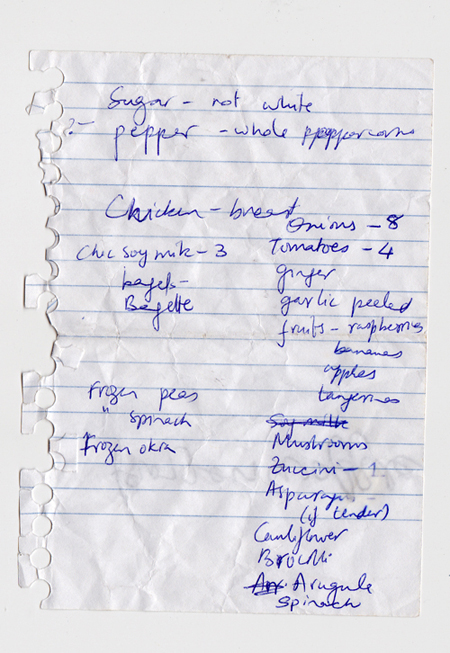 Sugar - not white
?- pepper - whole pppeppercorns
Chicken - breast
Onions - 8
Choc Soy milk - 3
Tomatoes - 4
bagels -
Bagette
ginger
garlic peeled
fruits - raspberries
bananas
apples
tangerines
Frozen peas
" spinach
Frozen okra
Soy milk
Mushrooms
Zuccini - 1
Asparagus
(if tender)
Cauliflower
Brocolli
Arugula
Spinach